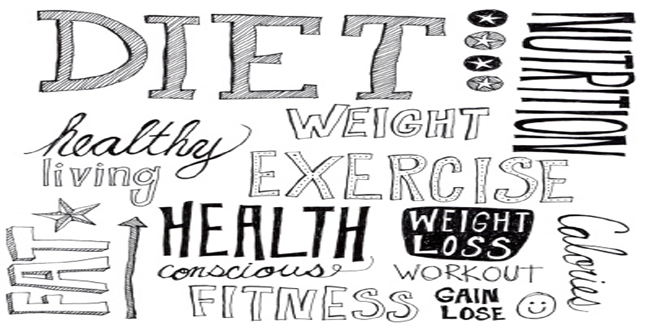 DIET
NUTRITION
WEIGHT
healthy
living
EXERCISE
FAT
HEALTH
conscious
WEIGHT
LOSS
Calories
WORKOUT
FITNESS
GAIN
LOSE